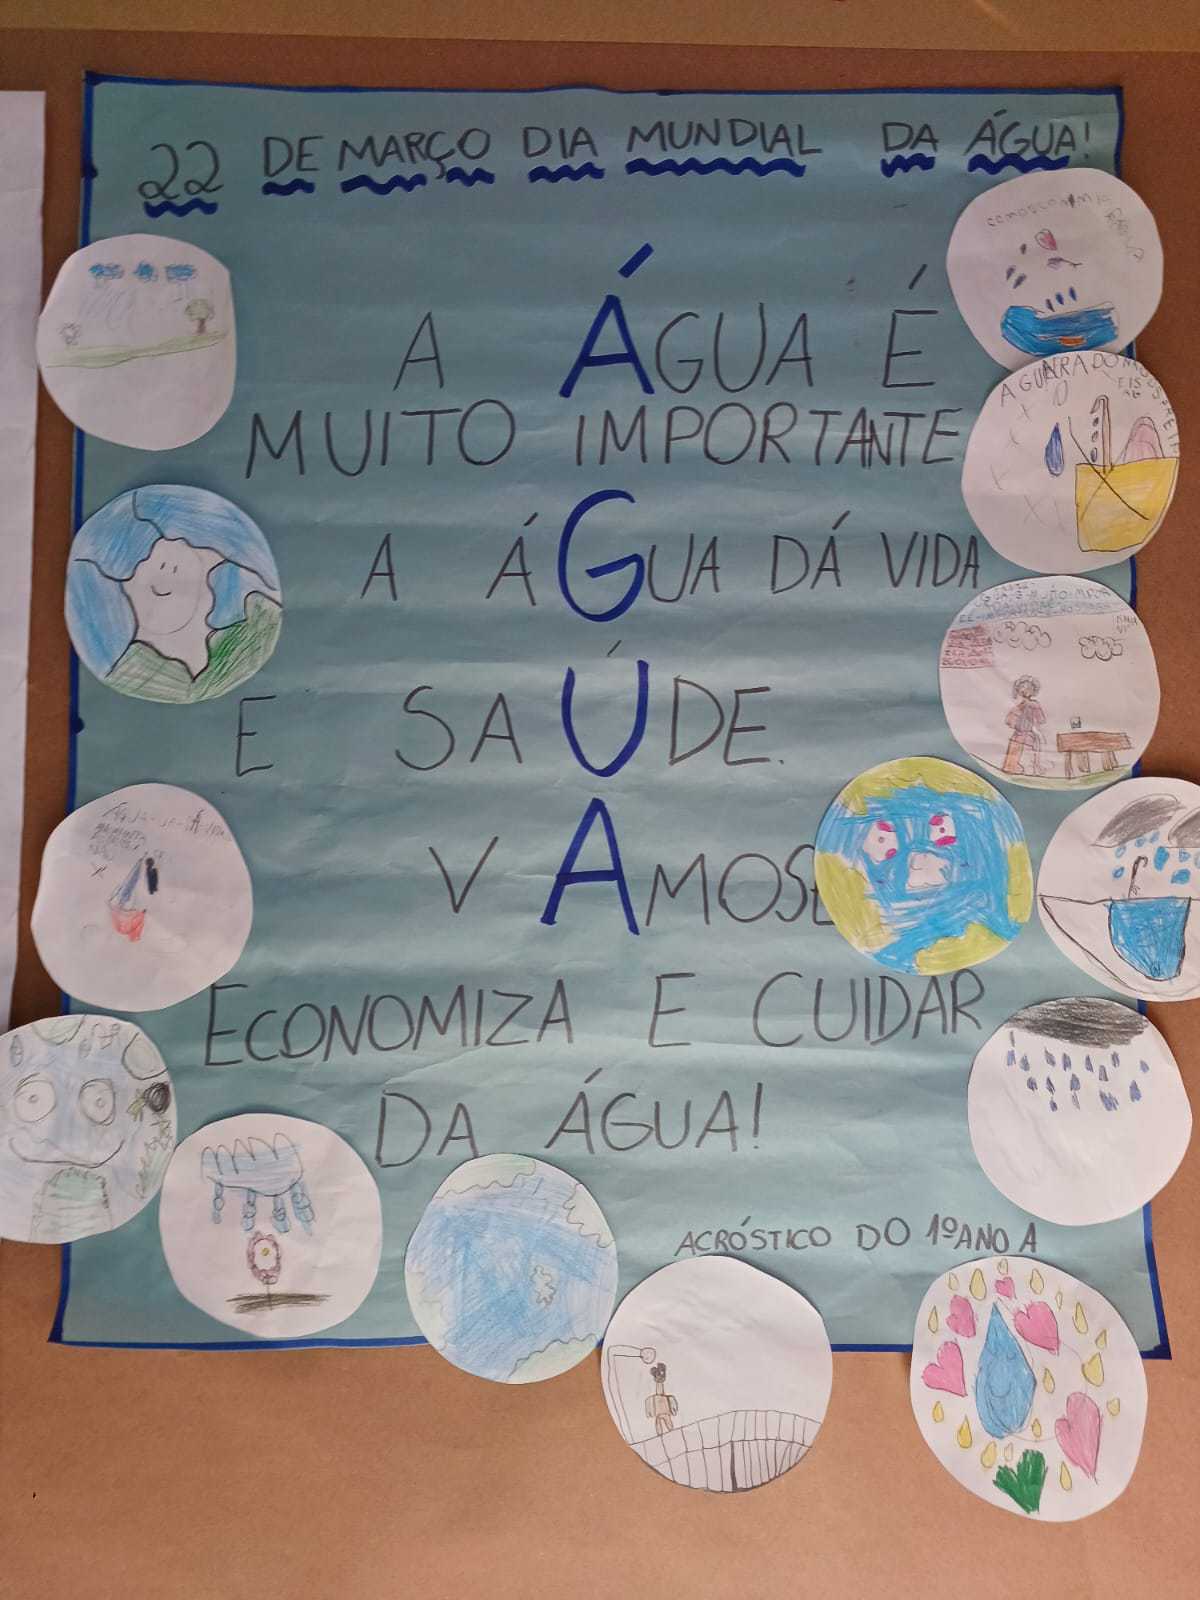 22 DE MARÇO DIA MUNDIAL DA ÁGUA!
A ÁGUA É
MUITO IMPORTANTE
A ÁGUA DÁ VIDA
E SAÚDE.
VAMOS
ECONOMIZA E CUIDAR
DA ÁGUA!
ACRÓSTICO DO 1º ANO A